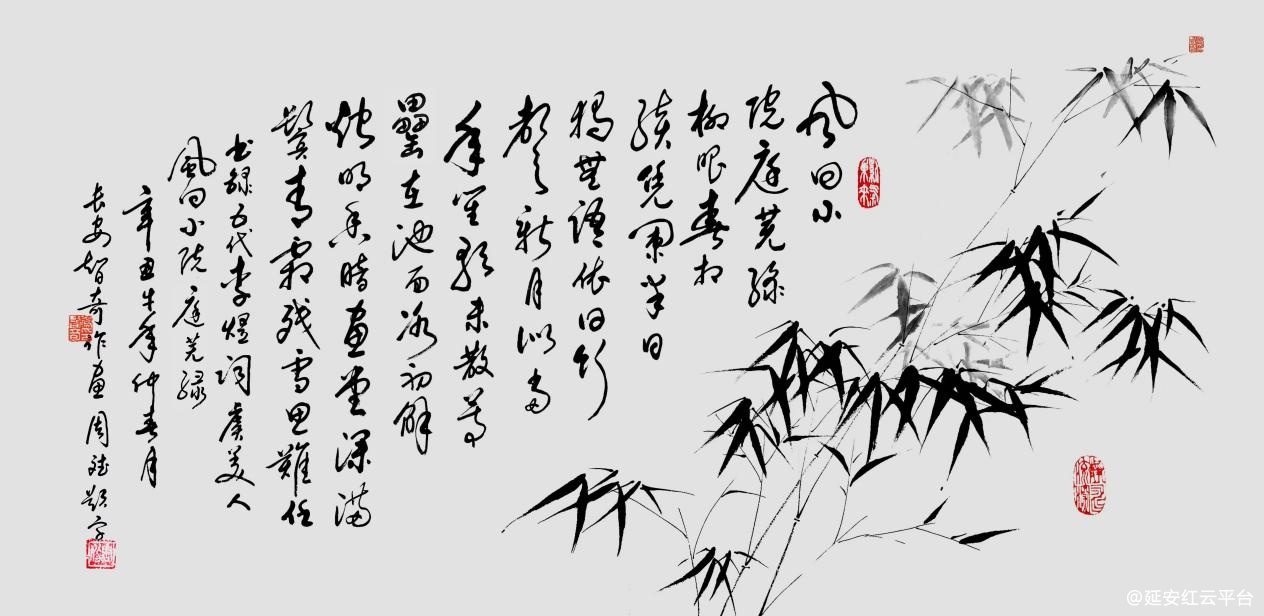 风回小
院庭芜绿
柳眼春相
续凭阑半日
獨無語依旧竹
声新月似当
年笙歌未散尊
罍在池面冰初解
烛明香暗画堂深满
鬓青霜残雪思難任
书録五代李煜词虞美人
風回小院庭芜绿
辛丑牛年仲春月
长安智奇作画周题字
@延安红云平台